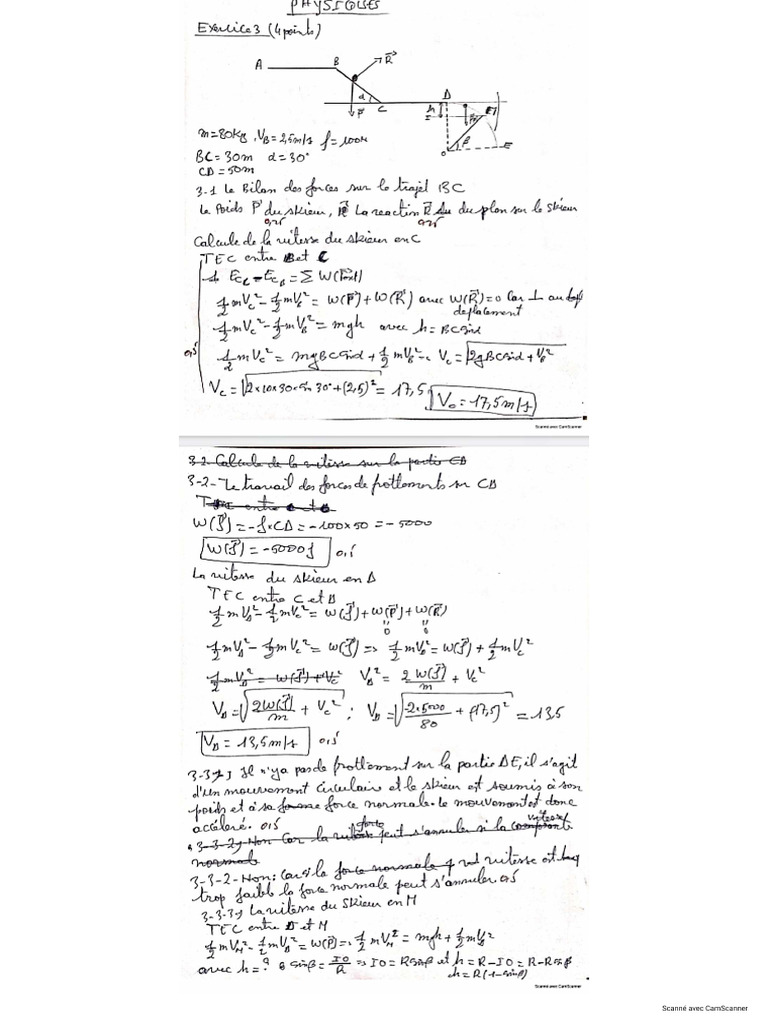 PHYSIQUES
Exercice 3 (4 points)
A B R
α C D h I M E
P O β
m=80kg, V_B=2,5m/s f=100N
BC=30m α=30°
CD=50m
3-1 Le Bilan des forces sur le trajet BC
Le Poids P du skieur, La reaction R du plan sur le skieur
0,25 0,25
Calcule de la vitesse du skieur en C
TEC entre B et C
E_CC - E_CB = Σ W(Fext)
½mV_C² - ½mV_B² = W(P) + W(R) avec W(R)=0 Car ⊥ au
deplacement
½mV_C² - ½mV_B² = mgh avec h=BCsinα
0,5 ½mV_C² = mgBCsinα + ½mV_B² V_C = √2gBCsinα + V_B²
V_C = √2×10×30×sin30° + (2,5)² = 17,5 V_C = 17,5m/s
Scanné avec CamScanner
3-2- Calcule de la vitesse sur la partie CD
3-2- Le travail des forces de frottements sur CD
TEC entre
W(f) = -f×CD = -100×50 = -5000
W(f) = -5000J 0,5
La vitesse du skieur en D
TEC entre C et D
½mV_D² - ½mV_C² = W(f) + W(P) + W(R)
0 0
½mV_D² - ½mV_C² = W(f) => ½mV_D² = W(f) + ½mV_C²
½mV_D² = W(f) + V_C² V_D² = 2W(f)/m + V_C²
V_D = √2W(f)/m + V_C² ; V_D = √-2×5000/80 + (17,5)² = 13,5
V_D = 13,5m/s 0,5
3-3-1) Il n'ya pas de frottement sur la partie DE, il s'agit
d'un mouvement circulaire et le skieur est soumis à son
poids et à sa force normale. le mouvement est donc
accéléré. 0,5
3-3-2) Non Car la force peut s'annuler si la vitesse
normale
3-3-2- Non: Car si la force normale vitesse est
trop faible la force normale peut s'annuler 0,5
3-3-3) La vitesse du Skieur en M
TEC entre D et M
½mV_M² - ½mV_D² = W(P) => ½mV_M² = mgh + ½mV_D²
avec h=? sinβ = IO/R => IO = Rsinβ et h = R-IO = R-Rsinβ
h = R(1-sinβ)
Scanné avec CamScanner
Scanné avec CamScanner